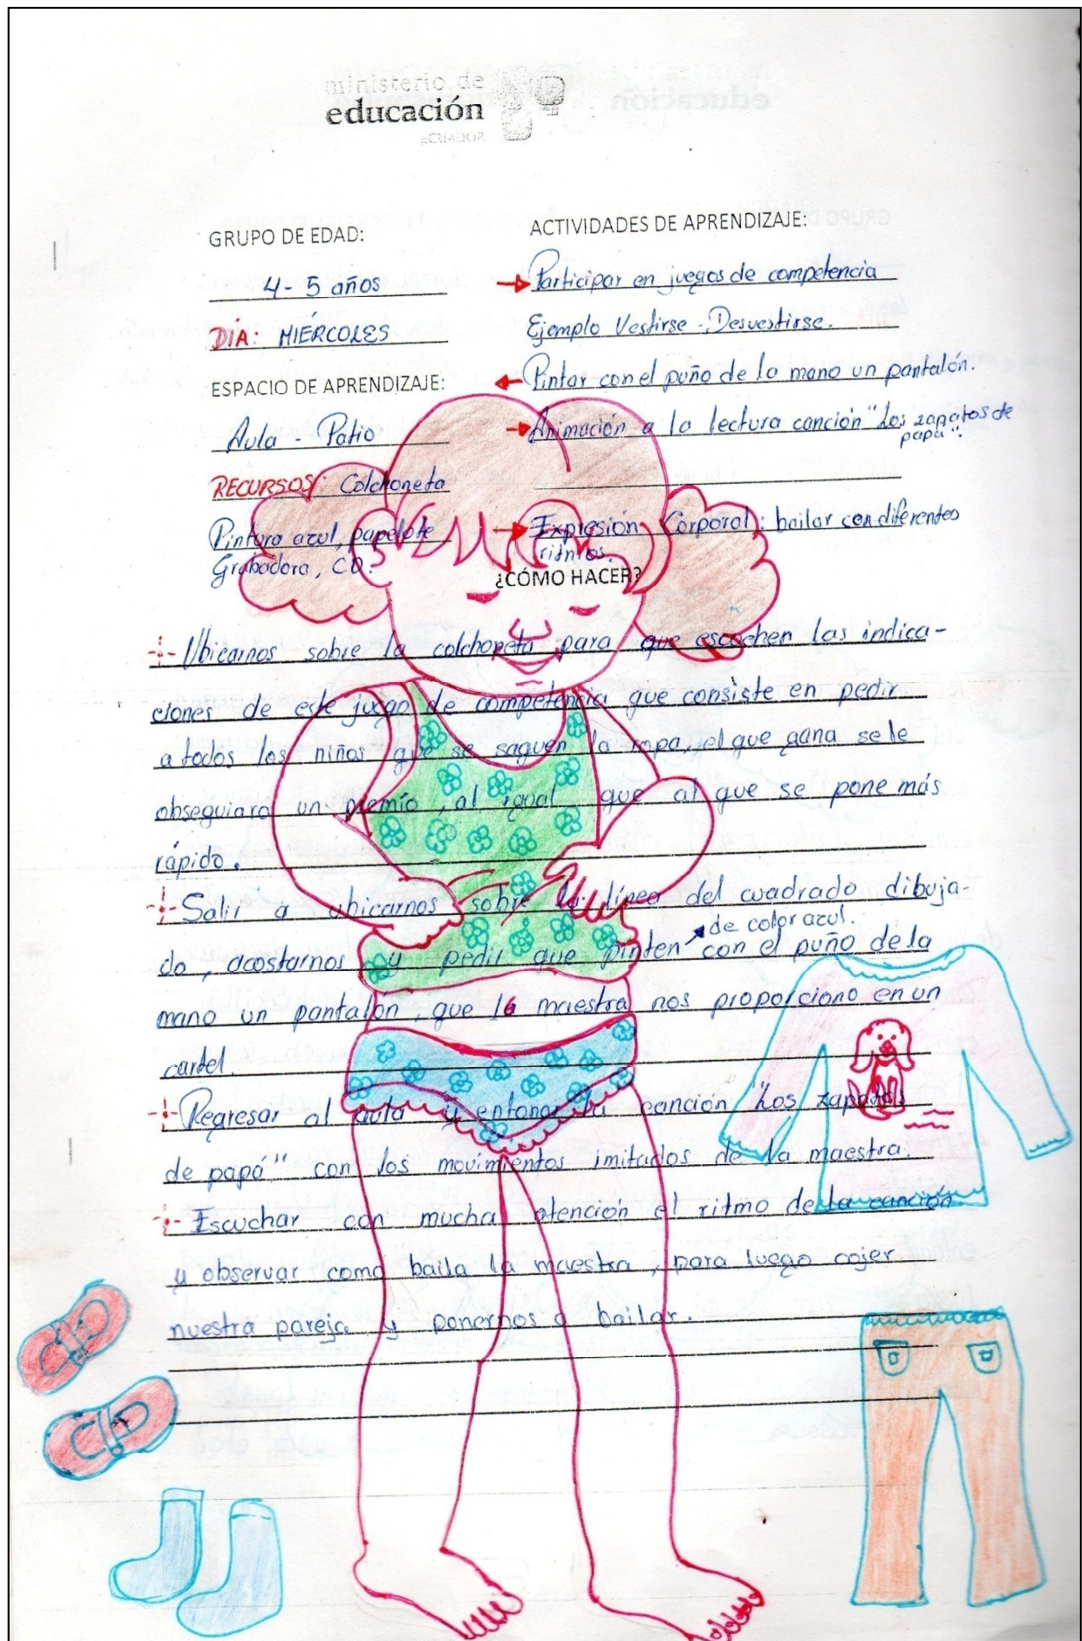 ministerio de
educación
ECUADOR
GRUPO DE EDAD:
4- 5 años
DÍA: MIÉRCOLES
ESPACIO DE APRENDIZAJE:
Aula - Patio
RECURSOS: Colchoneta
Pintura azul, papelote
Grabadora, CD.
ACTIVIDADES DE APRENDIZAJE:
Participar en juegos de competencia
Ejemplo Vestirse - Desvestirse.
Pintar con el puño de la mano un pantalón.
Animación a la lectura canción "Los zapatos de
papá".
Expresión Corporal: bailar con diferentes
ritmos.
¿CÓMO HACER?
Ubicarnos sobre la colchoneta para que escuchen las indica-
ciones de este juego de competencia que consiste en pedir
a todos los niños que se saquen la ropa, el que gana se le
obsequiara un premio, al igual que al que se pone más
rápido.
Salir a ubicarnos sobre la línea del cuadrado dibuja-
de color azul.
do, acostarnos y pedir que pinten con el puño de la
mano un pantalón, que la maestra nos proporciono en un
cartel.
Regresar al aula y entonar la canción "Los zapatos
de papá" con los movimientos imitados de la maestra.
Escuchar con mucha atención el ritmo de la canción
y observar como baila la maestra, para luego cojer
nuestra pareja y ponernos a bailar.